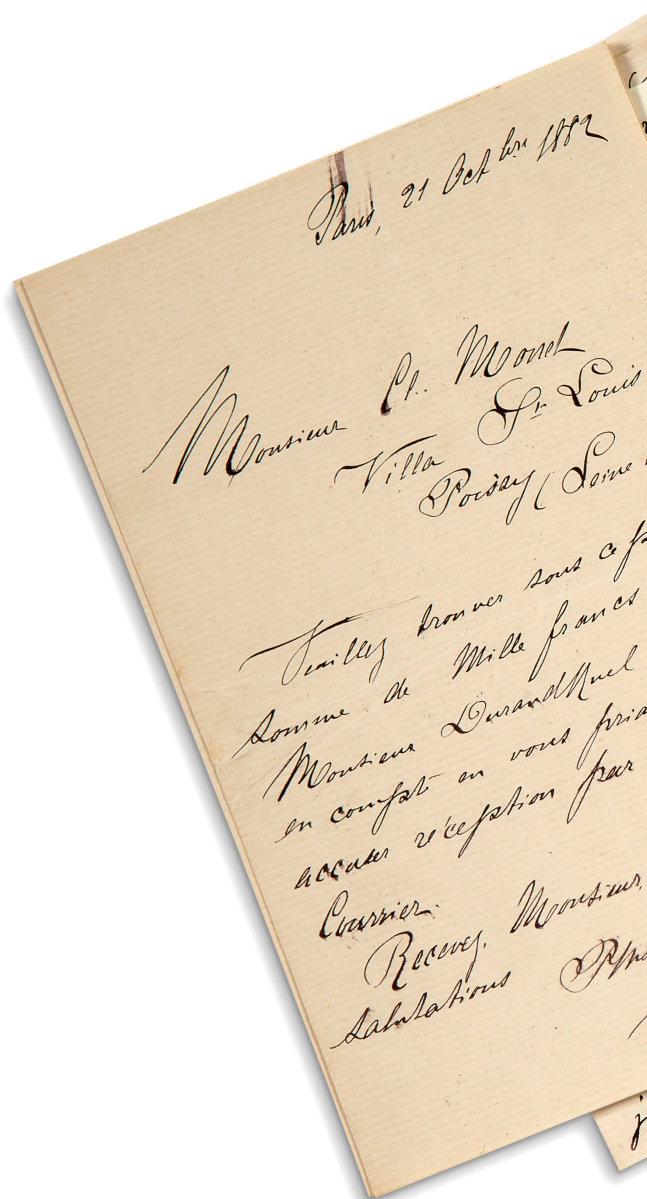 Paris, 21 Octbre 1882
Monsieur Cl. Monet
Villa St Louis
Poissy (Seine
Veuillez trouver sous ce
somme de Mille francs
Monsieur Durand Ruel
en compte en vous
accuser réception par
Courrier.
Recevez, Monsieur,
salutations